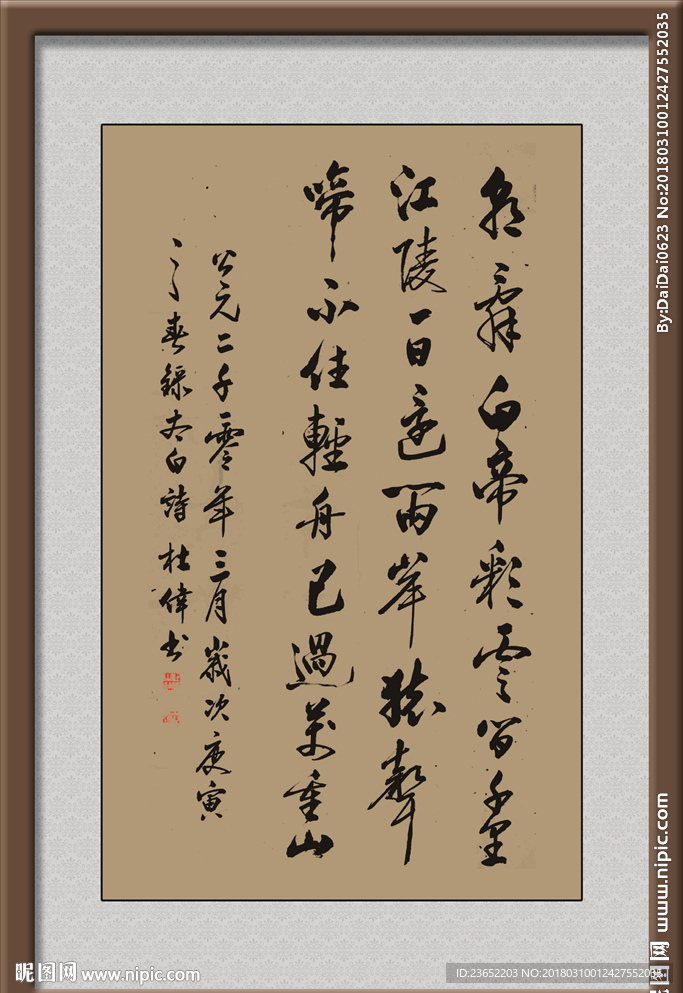 朝辭白帝彩雲間千里
江陵一日還兩岸猿聲
啼不住輕舟已過萬重山
公元二千一零年三月歲次庚寅
之春錄太白詩 杜偉书
By:DaiDai0623 No:20180310012427552035
昵图网 www.nipic.com
昵图网 www.nipic.com
ID:23652203 NO:20180310012427552035